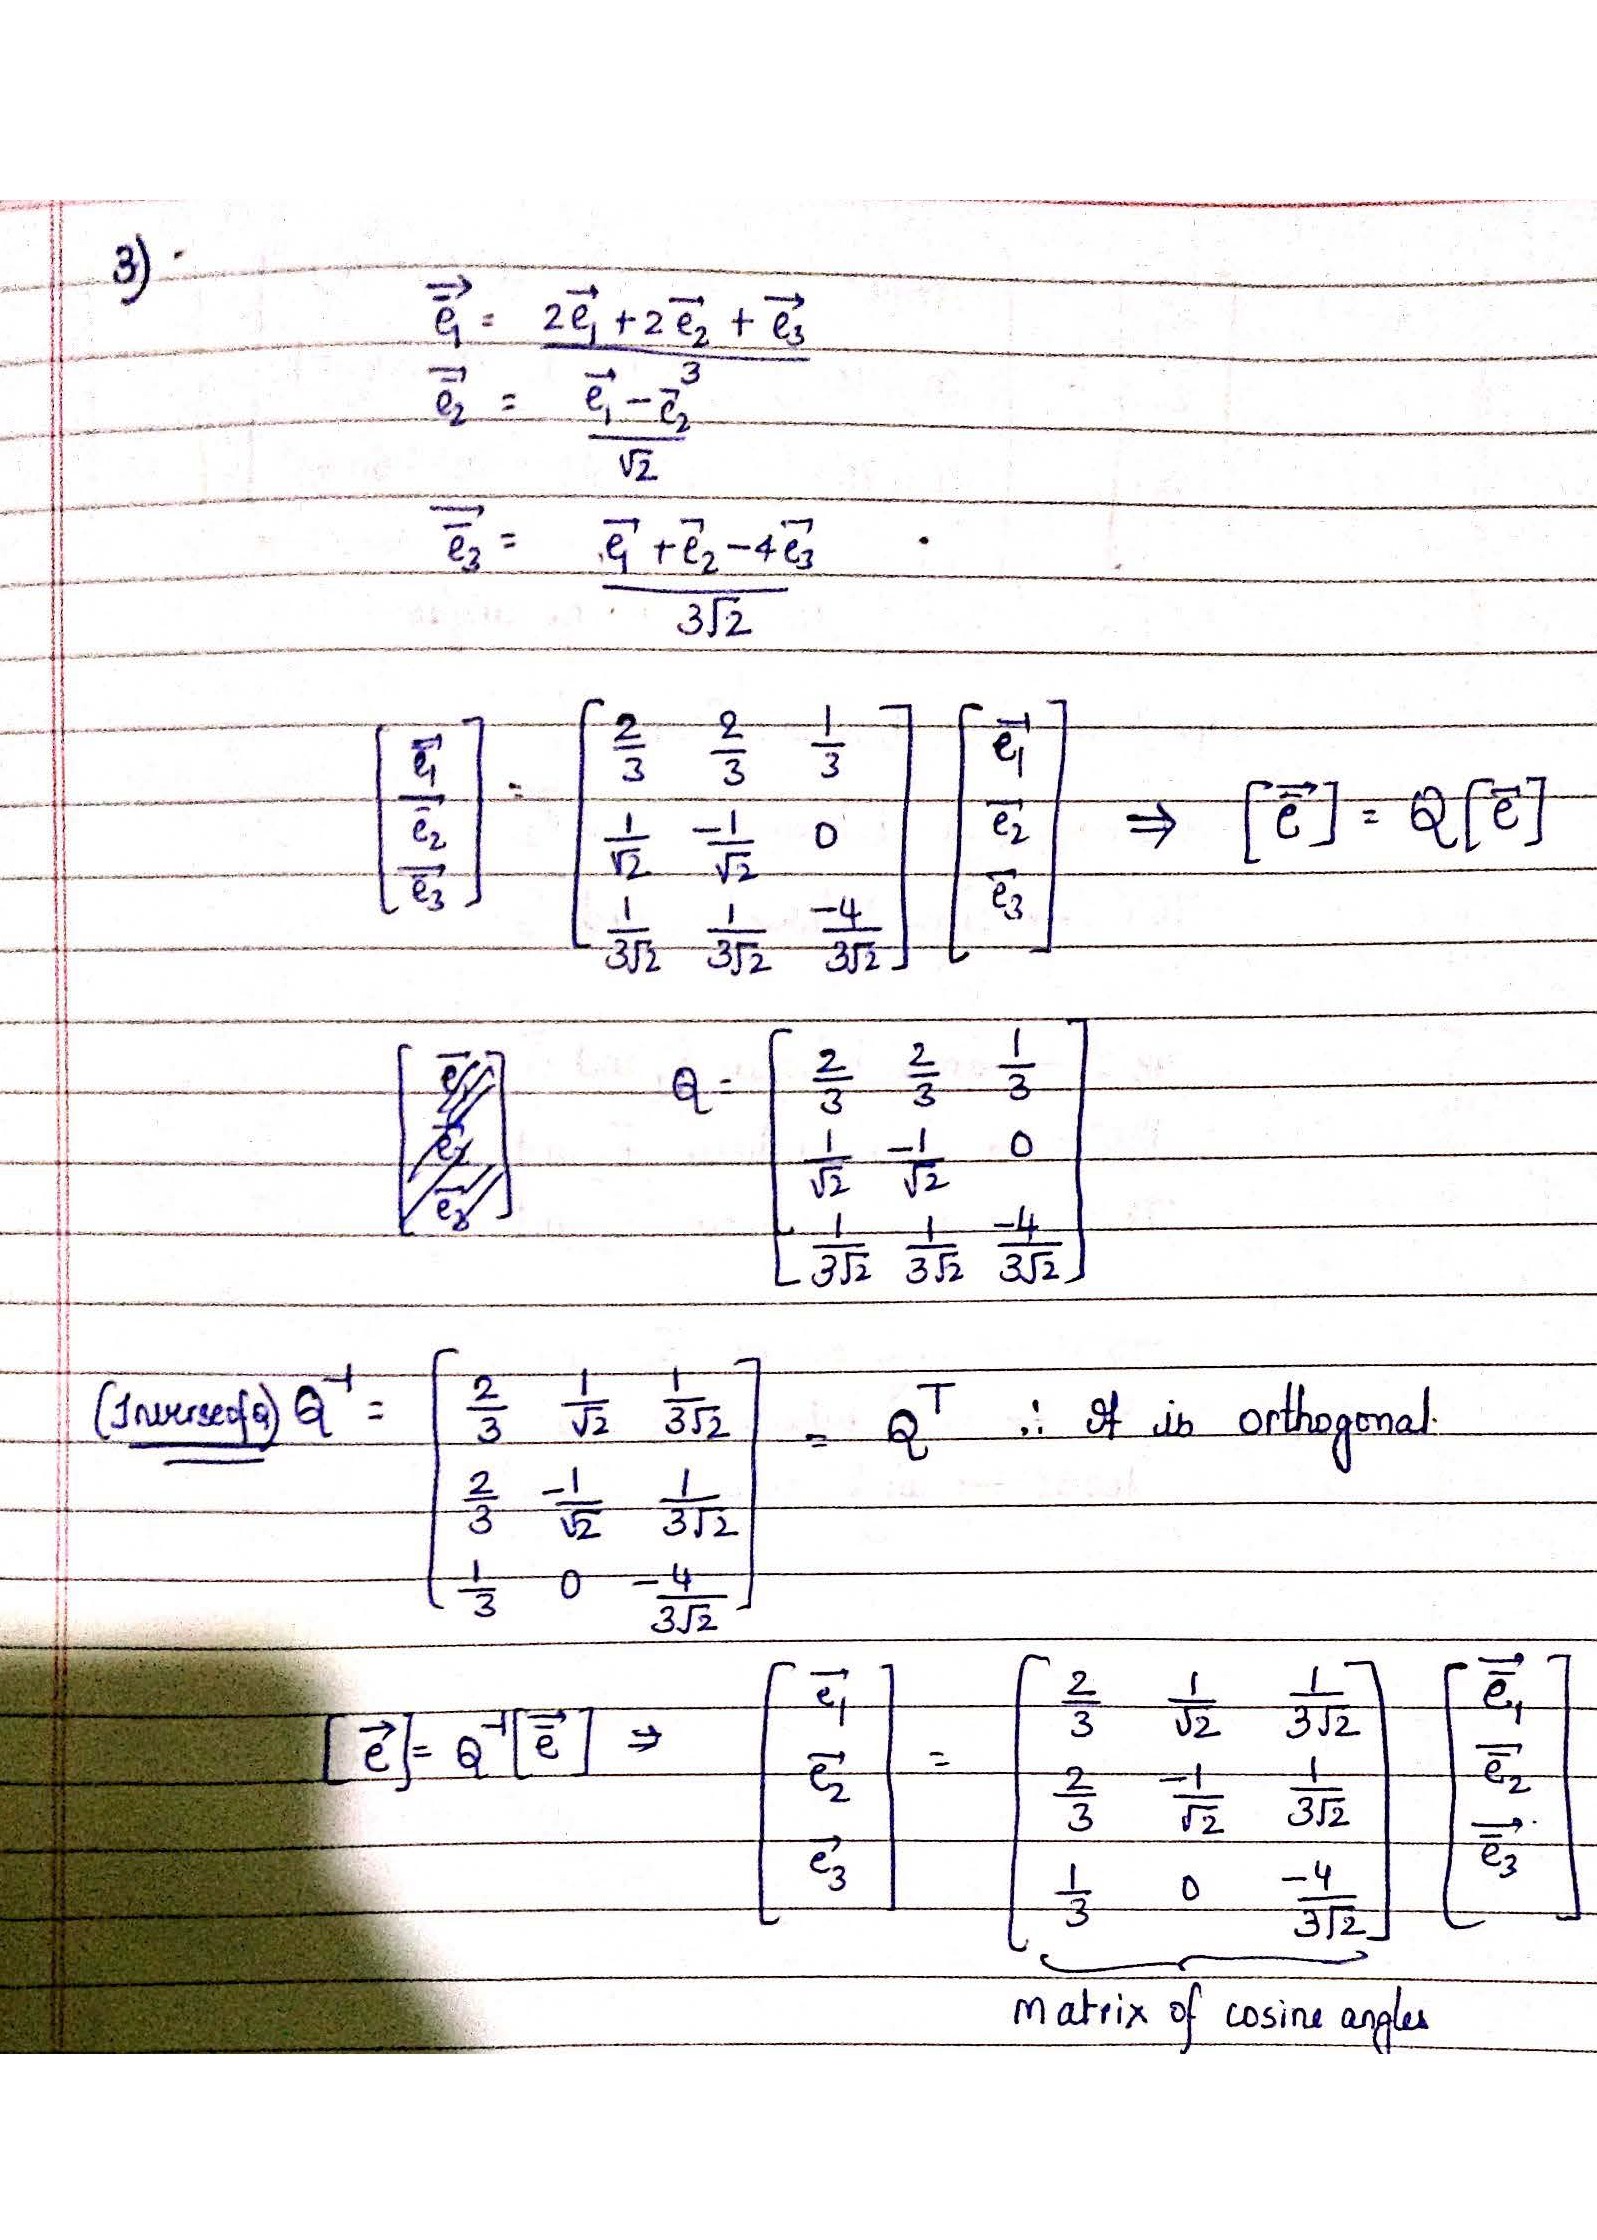 3)
$\vec{\bar{e}}_1 = \frac{2\vec{e}_1 + 2\vec{e}_2 + \vec{e}_3}{3}$
$\vec{\bar{e}}_2 = \frac{\vec{e}_1 - \vec{e}_2}{\sqrt{2}}$
$\vec{\bar{e}}_3 = \frac{\vec{e}_1 + \vec{e}_2 - 4\vec{e}_3}{3\sqrt{2}}$
$\begin{bmatrix} \vec{\bar{e}}_1 \\ \vec{\bar{e}}_2 \\ \vec{\bar{e}}_3 \end{bmatrix} = \begin{bmatrix} \frac{2}{3} & \frac{2}{3} & \frac{1}{3} \\ \frac{1}{\sqrt{2}} & \frac{-1}{\sqrt{2}} & 0 \\ \frac{1}{3\sqrt{2}} & \frac{1}{3\sqrt{2}} & \frac{-4}{3\sqrt{2}} \end{bmatrix} \begin{bmatrix} \vec{e}_1 \\ \vec{e}_2 \\ \vec{e}_3 \end{bmatrix} \Rightarrow [\vec{\bar{e}}] = Q[\vec{e}]$
$Q = \begin{bmatrix} \frac{2}{3} & \frac{2}{3} & \frac{1}{3} \\ \frac{1}{\sqrt{2}} & \frac{-1}{\sqrt{2}} & 0 \\ \frac{1}{3\sqrt{2}} & \frac{1}{3\sqrt{2}} & \frac{-4}{3\sqrt{2}} \end{bmatrix}$
(Inverse of Q) $Q^{-1} = \begin{bmatrix} \frac{2}{3} & \frac{1}{\sqrt{2}} & \frac{1}{3\sqrt{2}} \\ \frac{2}{3} & \frac{-1}{\sqrt{2}} & \frac{1}{3\sqrt{2}} \\ \frac{1}{3} & 0 & \frac{-4}{3\sqrt{2}} \end{bmatrix} = Q^T \therefore$ It is orthogonal.
$[\vec{e}] = Q^{-1}[\vec{\bar{e}}] \Rightarrow \begin{bmatrix} \vec{e}_1 \\ \vec{e}_2 \\ \vec{e}_3 \end{bmatrix} = \begin{bmatrix} \frac{2}{3} & \frac{1}{\sqrt{2}} & \frac{1}{3\sqrt{2}} \\ \frac{2}{3} & \frac{-1}{\sqrt{2}} & \frac{1}{3\sqrt{2}} \\ \frac{1}{3} & 0 & \frac{-4}{3\sqrt{2}} \end{bmatrix} \begin{bmatrix} \vec{\bar{e}}_1 \\ \vec{\bar{e}}_2 \\ \vec{\bar{e}}_3 \end{bmatrix}$
matrix of cosine angles